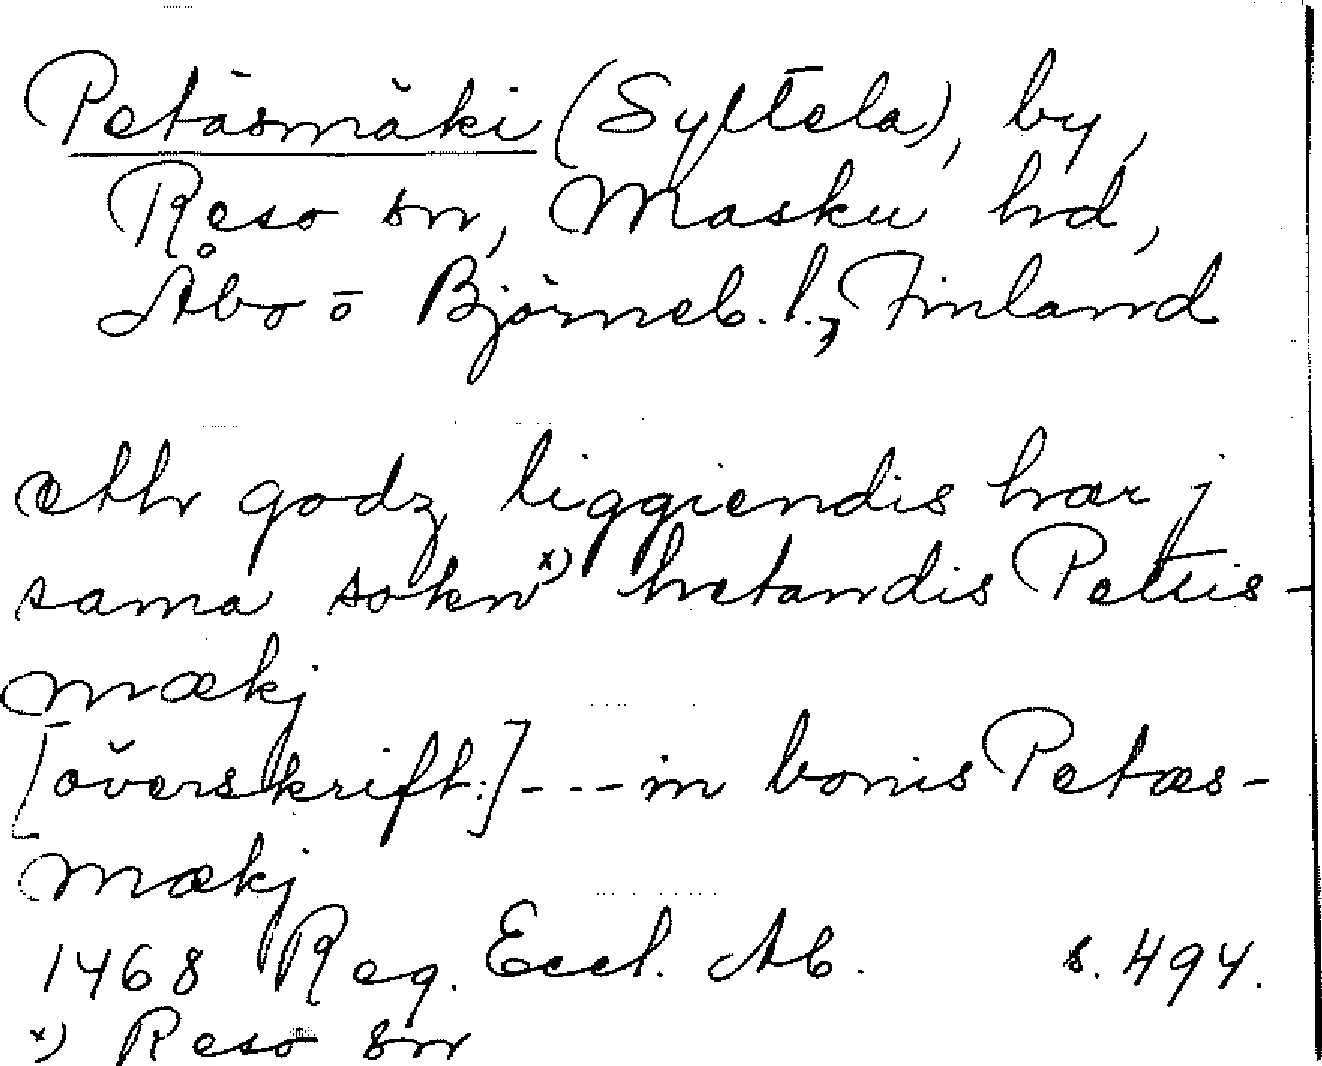 Petäsmäki (Syltela), by,
Reso sn, Masku hd,
Åbo o Björneb. l., Finland
etth godz liggiendis hær j
sama sokn x) hetandis Pettis-
mækj
[överskrift:] --- in bonis Petæs-
mækj
1468 Reg. Eccl. Ab. s. 494.
x) Reso sn